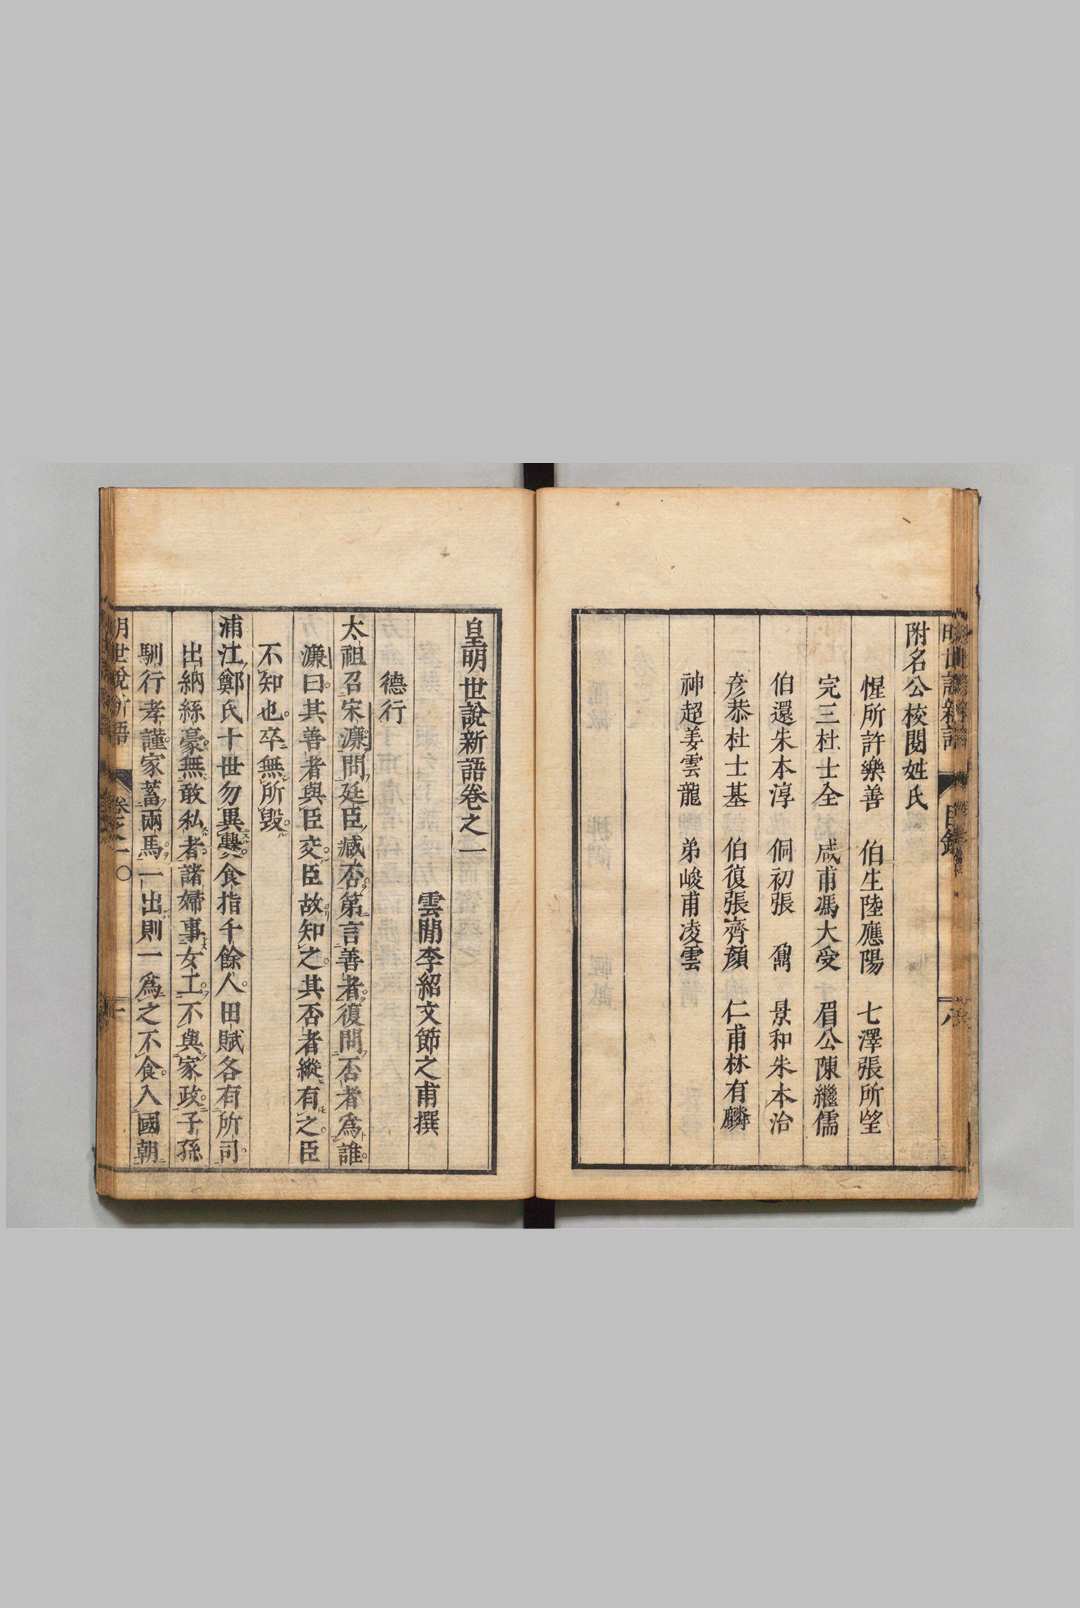 附名公校閱姓氏
惺所許樂善　伯生陸應陽　七澤張所望
完三杜士全　咸甫馮大受　眉公陳繼儒
伯還朱本淳　侗初張鼐　景和朱本治
彥恭杜士基　伯復張齊顏　仁甫林有麟
神超姜雲龍　弟峻甫凌雲
皇明世說新語卷之一
雲閒李紹文節之甫撰
德行
太祖召宋濂問廷臣臧否第言善者復問否者爲誰
濂曰其善者與臣交臣故知之其否者縱有之臣
不知也卒無所毀
浦江鄭氏十世勿異爨食指千餘人田賦各有所司
出納絲毫無敢私者諸婦事女工不與家政子孫
馴行孝謹家蓄兩馬一出則一爲之不食入國朝
明世說新語　卷之一　〇　一